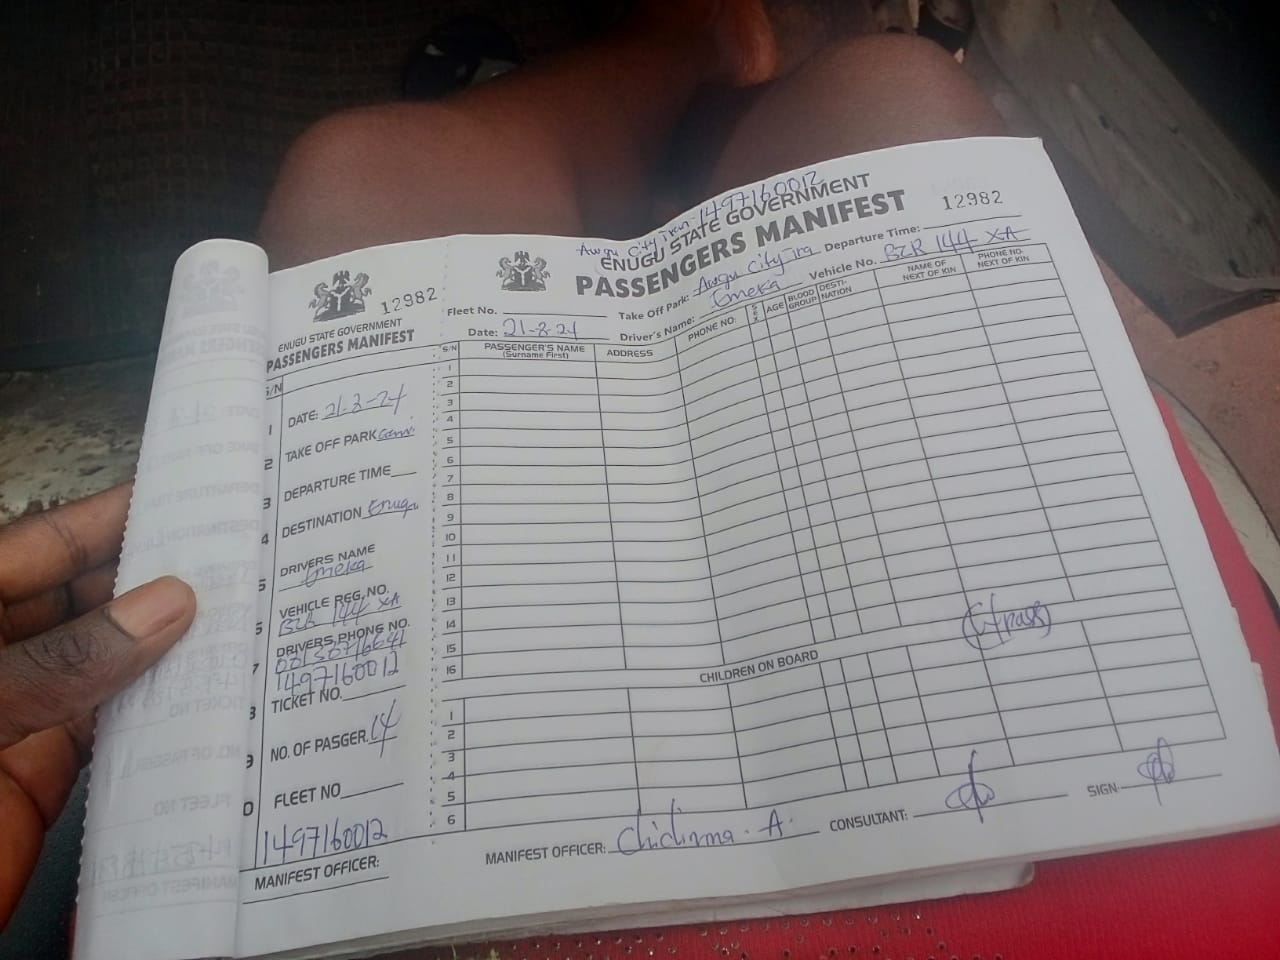 12982
ENUGU STATE GOVERNMENT
PASSENGERS MANIFEST
S/N
1 DATE: 21-2-24
2 TAKE OFF PARK
3 DEPARTURE TIME
4 DESTINATION Enugu
5 DRIVERS NAME
Emeka
6 VEHICLE REG. NO.
BZR 144 XA
7 DRIVERS PHONE NO.
1497160012
8 TICKET NO.
9 NO. OF PASGER. 14
0 FLEET NO
1497160012
MANIFEST OFFICER:
Awgu City Tran 1497160012
ENUGU STATE GOVERNMENT
PASSENGERS MANIFEST
12982
Fleet No. Take Off Park: Awgu City Tra Departure Time:
Date: 21-2-24 Driver's Name: Emeka Vehicle No. BZR 144 XA
S/N PASSENGER'S NAME (Surname First) ADDRESS PHONE NO: SEX AGE BLOOD GROUP DESTI-NATION NAME OF NEXT OF KIN PHONE NO. NEXT OF KIN
1
2
3
4
5
6
7
8
9
10
11
12
13
14
15
16
CHILDREN ON BOARD
1
2
3
4
5
6
MANIFEST OFFICER: Chidinma. A. CONSULTANT: SIGN